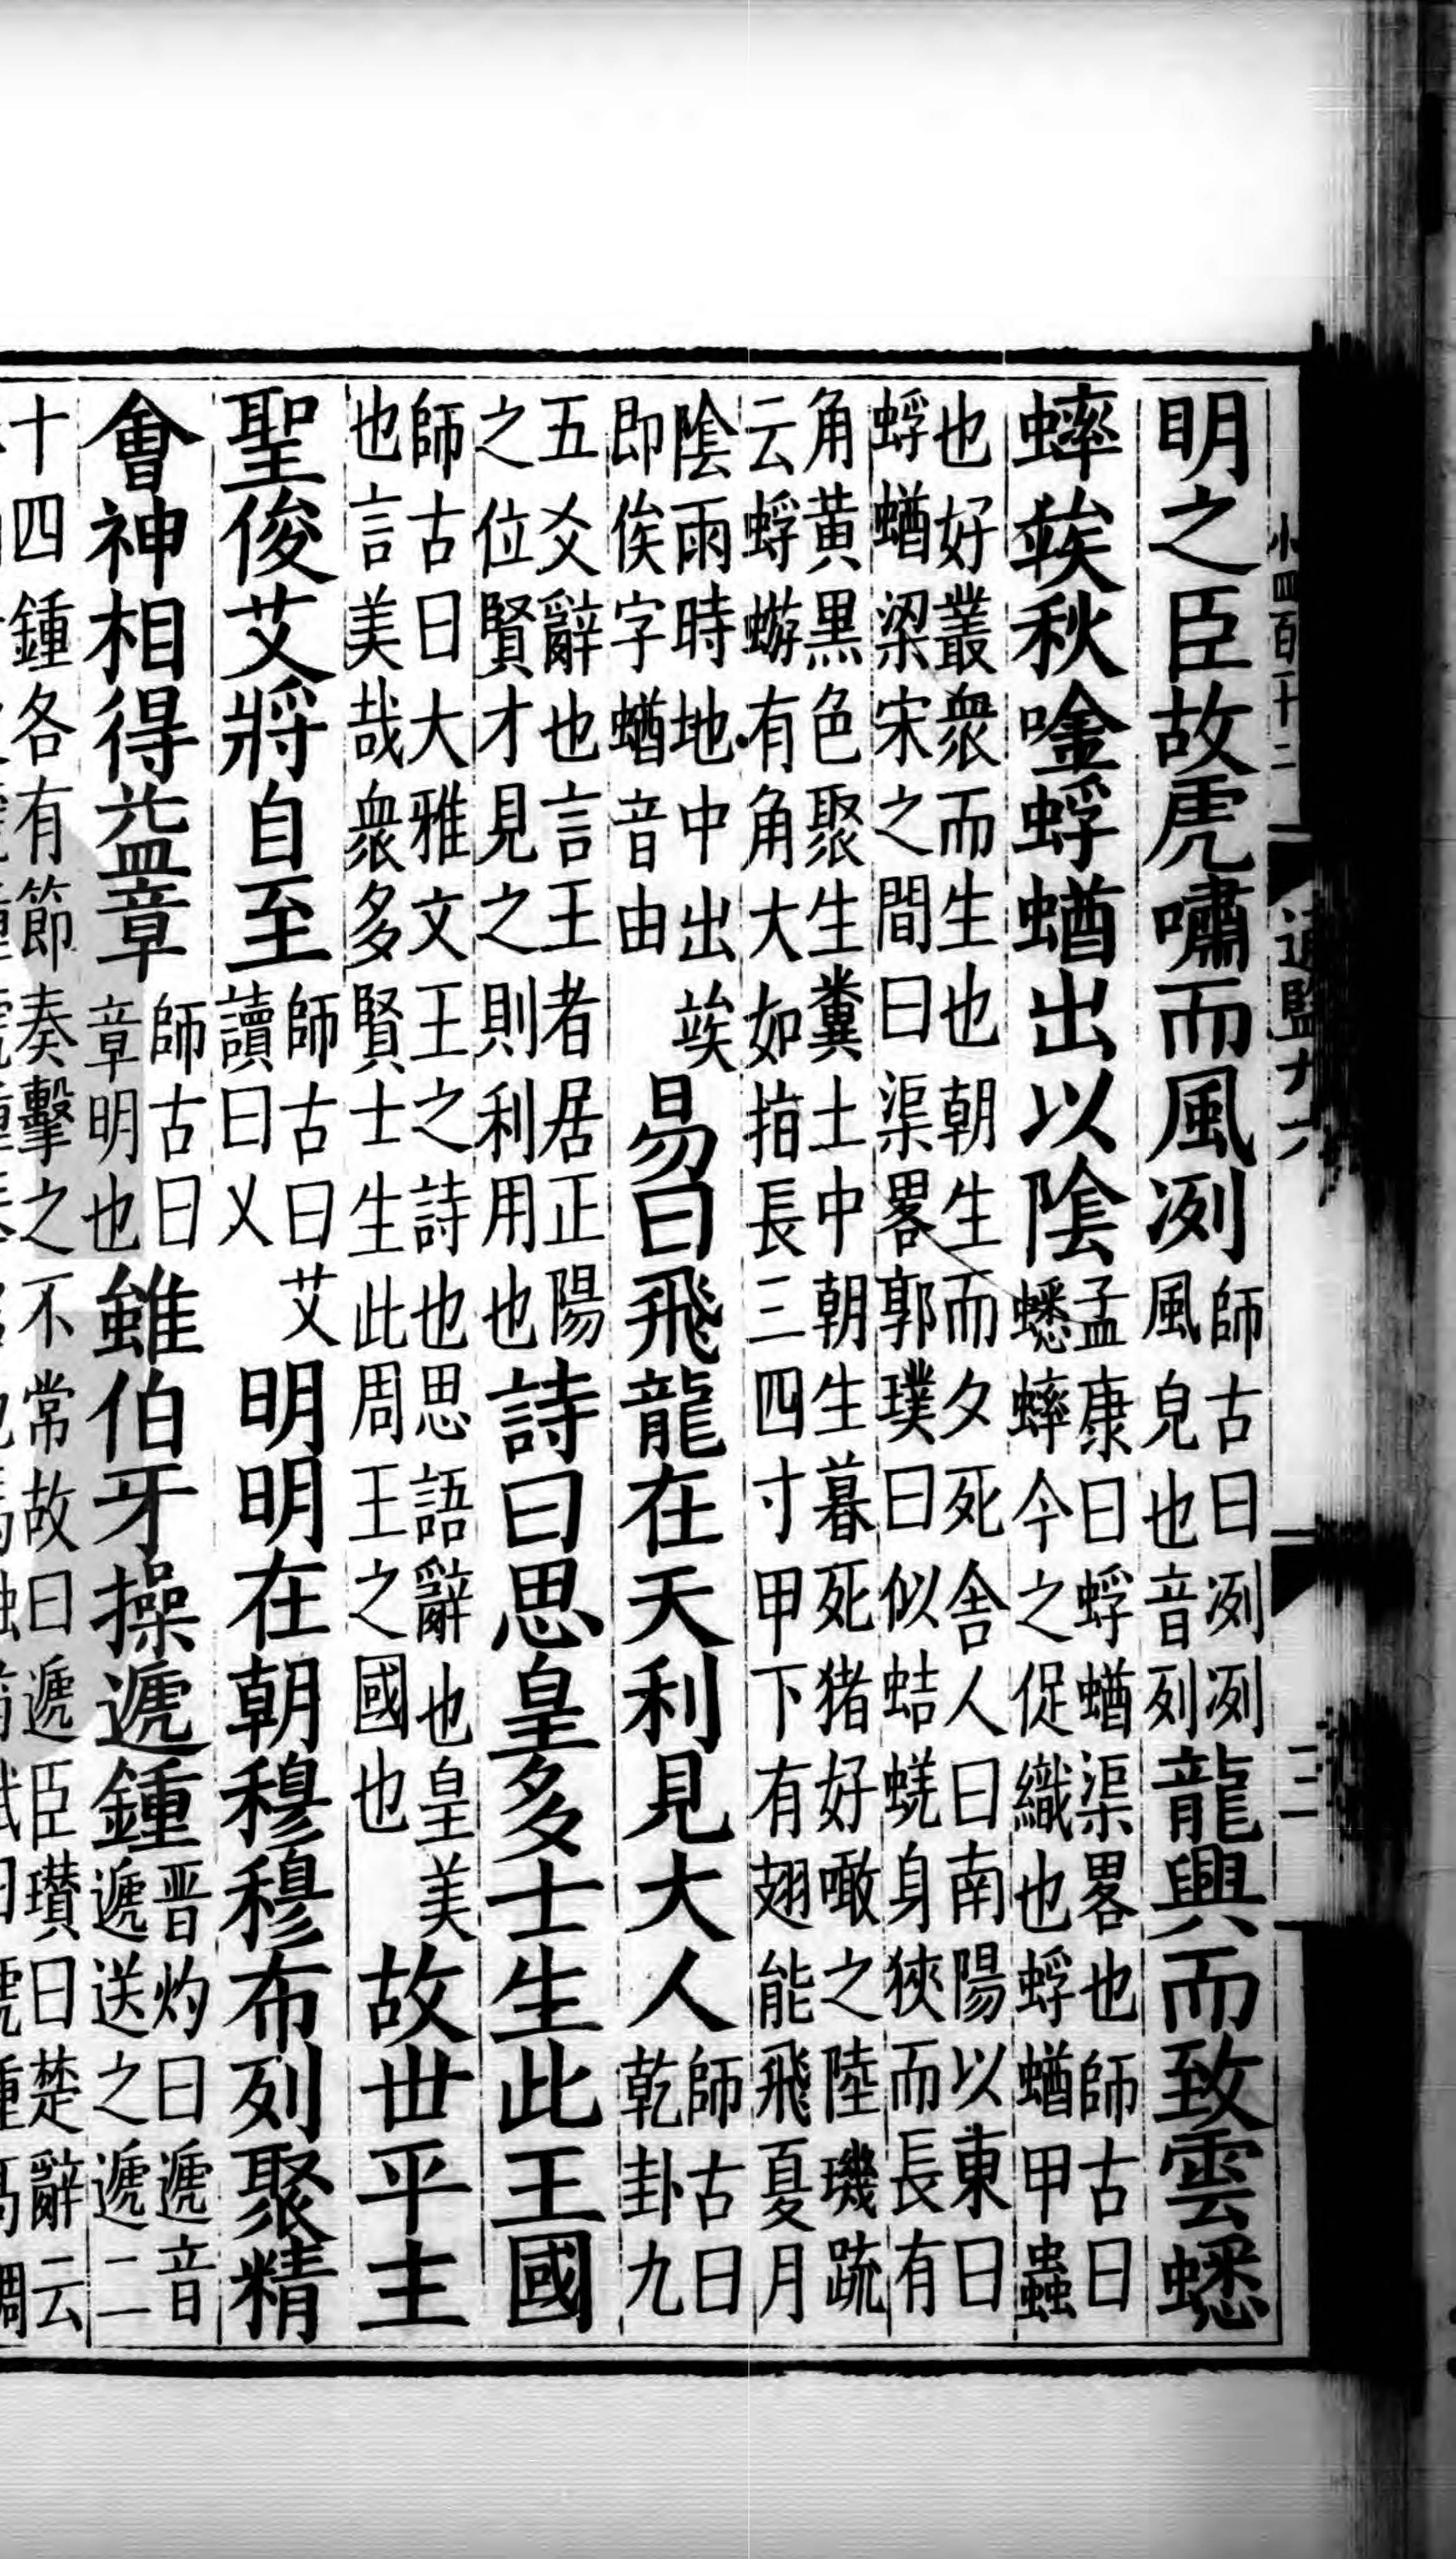 小四百十二
明之臣故虎嘯而風冽師古曰冽冽風皃也音列龍興而致雲蟋
蟀竢秋唫蜉蝤出以陰孟康曰蜉蝤渠畧也師古曰蟋蟀今之促織也蜉蝤甲蟲
也好叢衆而生也朝生而夕死舎人曰南陽以東曰
蜉蝤梁宋之間曰渠畧郭璞曰似蛣蜣身狹而長有
角黃黑色聚生糞土中朝生暮死猪好噉之陸璣疏
云蜉蝣有角大如指長三四寸甲下有翅能飛夏月
陰雨時地中出竢即俟字蝤音由易曰飛龍在天利見大人師古曰乾卦九
五爻辭也言王者居正陽之位賢才見之則利用也詩曰思皇多士生此王國
師古曰大雅文王之詩也思語辭也皇美也言美哉衆多賢士生此周王之國也故世平主
聖俊艾將自至師古曰艾讀曰乂明明在朝穆穆布列聚精
會神相得益章師古曰章明也雖伯牙操遞鍾晋灼曰遞音遞送之遞二
十四鍾各有節奏擊之不常故曰遞臣瓚曰楚辭云